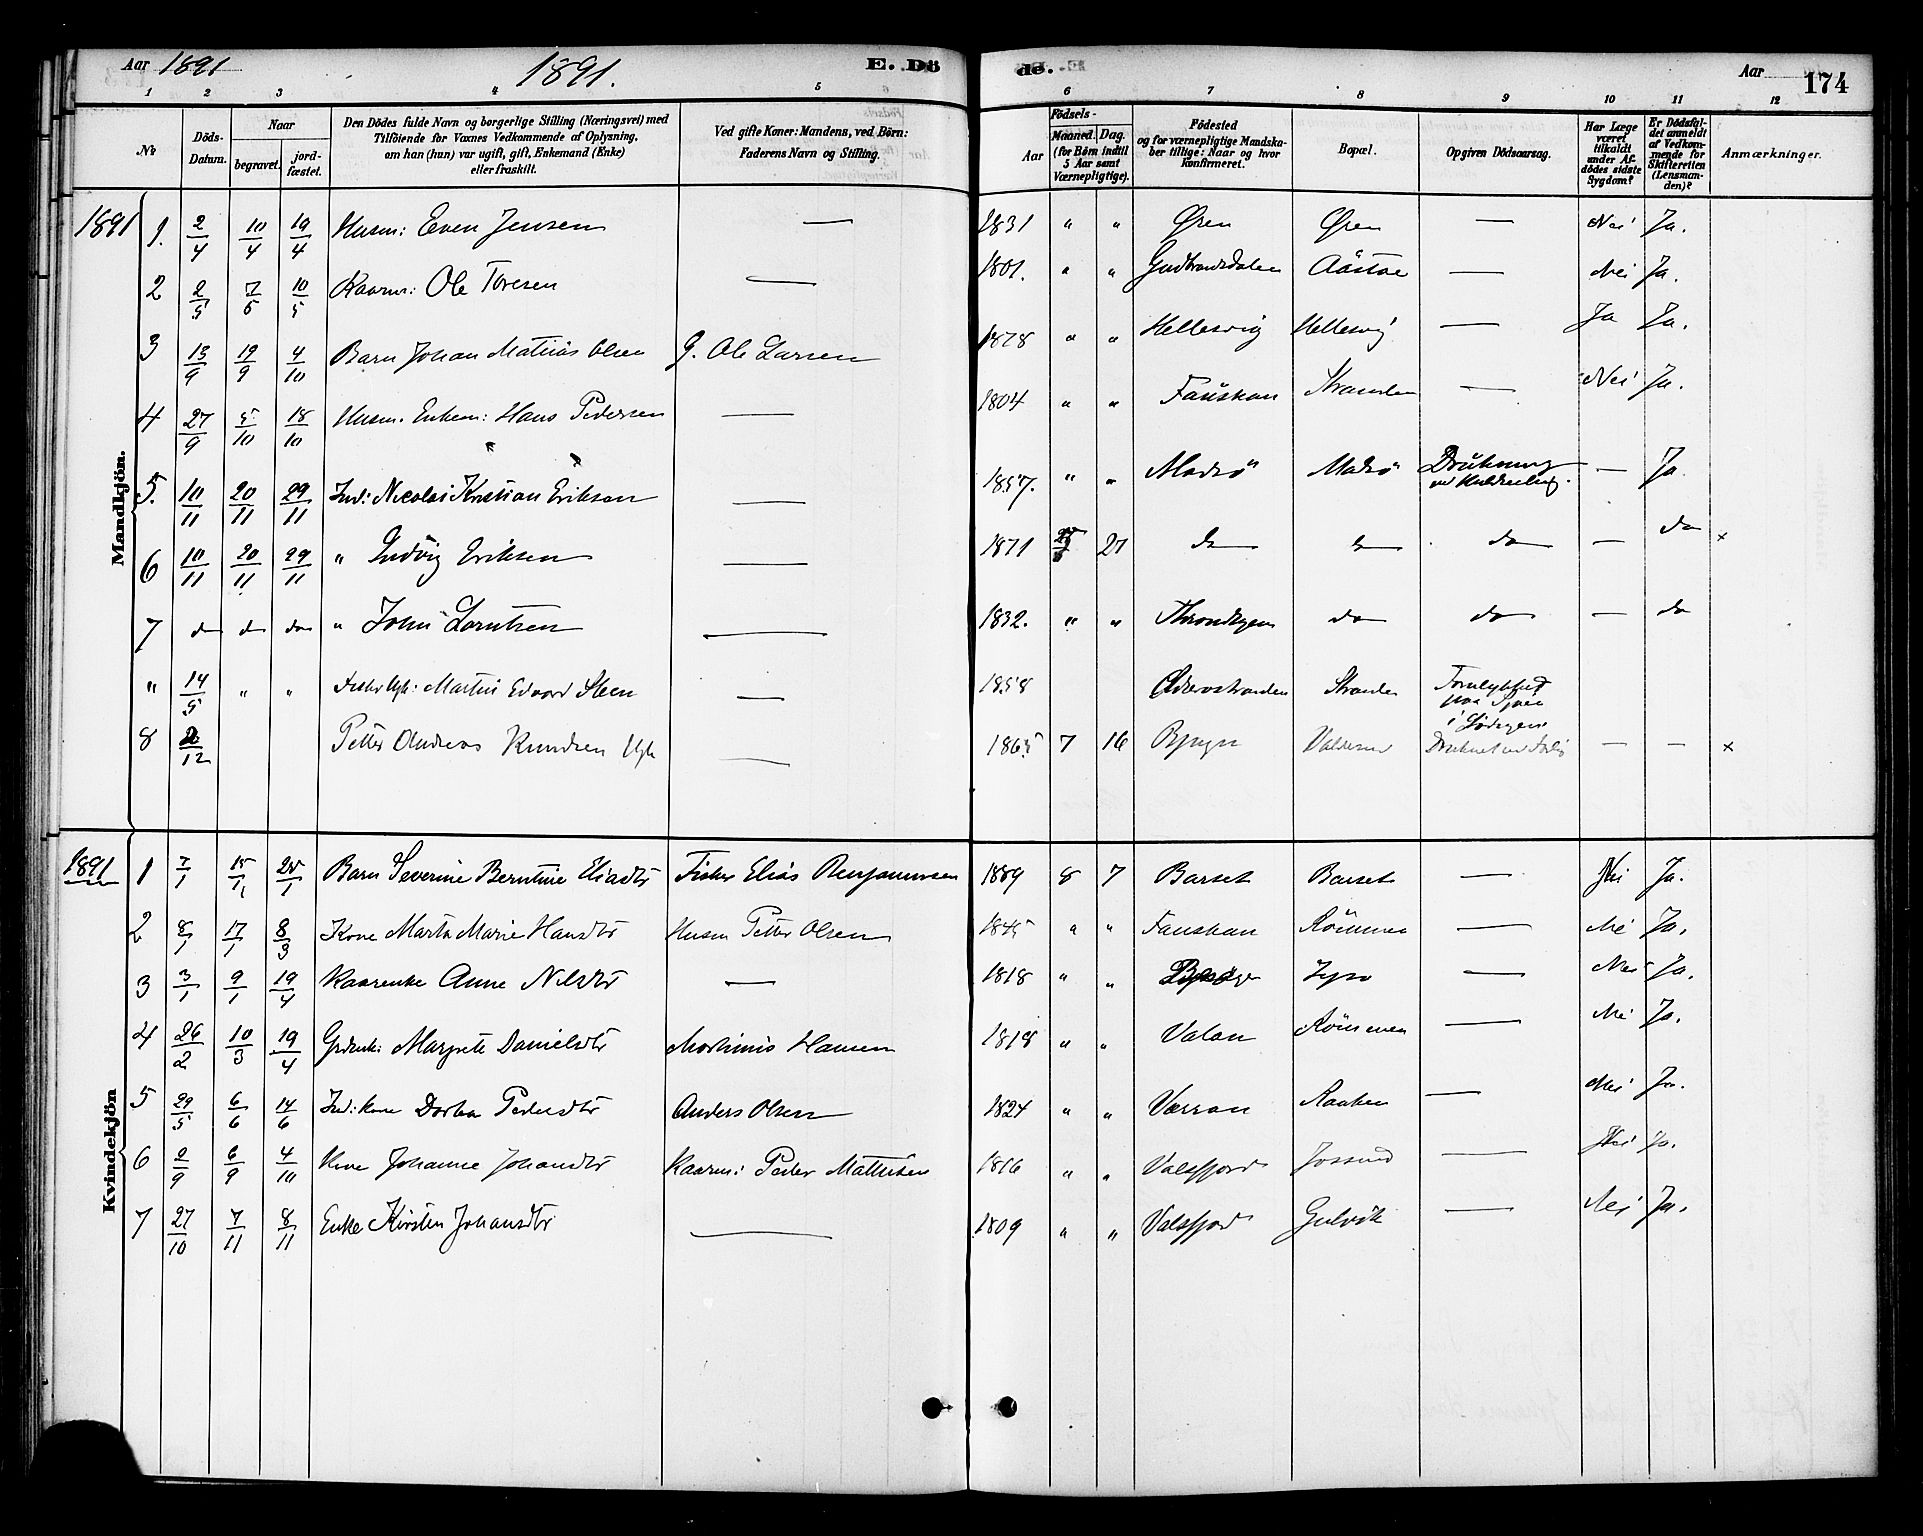 Aar 1891 1891. E. Dö de. Aar 174
1 2 3 4 5 6 7 8 9 10 11 12
No
Döds-Datum.
Naar
begravet.
jord-fæstet.
Den Dödes fulde Navn og borgerlige Stilling (Næringsvei) med
Tilföiende for Voxnes Vedkommende af Oplysning,
om han (hun) var ugift, gift, Enkemand (Enke)
eller fraskilt.
Ved gifte Koner: Mandens, ved Börn:
Faderens Navn og Stilling.
Födsels-
Aar
Maaned. Dag.
(for Börn indtil
5 Aar samt
Værnepligtige).
Födested
og for værnepligtige Mandska-
ber tillige: Naar og hvor
konfirmeret.
Bopæl.
Opgiven Dödsaarsag.
Har Læge
været
tilkaldt
under Af-
dödes sidste
Sygdom?
Er Dödsfal-
det anmeldt
af Vedkom-
mende for
Skifteretten
(Lensman-
den)?
Anmærkninger.
Mandkjön.
1891 1. 2/4 10/4 19/4 Husm: Even Jensen — 1831 " " Øren Øren — Nei Ja.
2 2/5 7/5 10/5 Kaarm: Ole Toresen — 1801. " " Gudbrandsdalen — Nei Ja.
3 13/9 19/9 4/10 Barn Johan Mathias Olsen G. Ole Larsen 1878 " " Hellesvig Hellesvig — Ja Ja.
4 27/9 5/10 18/10 Husm. Enkem: Hans Pedersen — 1804 " " Fauskan Stranden — Nei Ja.
5. 10/11 20/11 29/11 Ind: Nicolai Kristian Eriksen — 1857. " " Madsö Madsö Drukning — Ja.
6 10/11 20/11 29/11 " Ludvig Eriksen — 1871 27 do do do — do ×
7 do do do " John Lorntsen — 1832. " " Throndhjem do do — do
" 14/5 " " Fisker Ugk: Martin Edvard Steen — 1858 Stranden Forulykket paa Sjøen
8 2/12 Petter Andreas Knudsen Ugk — 1865 7 16 Bjugn Valdersund — — ×
Kvindekjön
1891 1 7/1 15/1 25/1 Barn Severine Berntine Eliasdtr Fisker Elias Benjaminsen 1889 8 7 Barset Barset — Nei Ja.
2 8/1 17/1 8/3 Kone Marta Marie Hansdtr Husm Petter Olsen 1845 " " Fauskan Römmen — Nei Ja.
3 3/1 9/1 19/4 Kaarenke Anne Nilsdtr — 1818 " " — Nei Ja.
4 26/2 10/3 19/4 Grdenk: Margrete Danielsdtr Mortinus Hansen 1818 " " Valan Römmen — Nei Ja.
5 29/5 6/6 14/6 Ind: kone Dortea Pedersdtr Anders Olsen 1824 " " Værran Raaken — Nei Ja.
6 2/9 6/9 4/10 Kone Johanne Johansdtr Kaarm: Peder Mathisen 1816 " " Valsfjord Jossund — Nei Ja.
7 27/10 7/11 8/11 Enke Kirsten Johansdtr — 1809 " " Valsfjord Gulvik — Nei Ja.